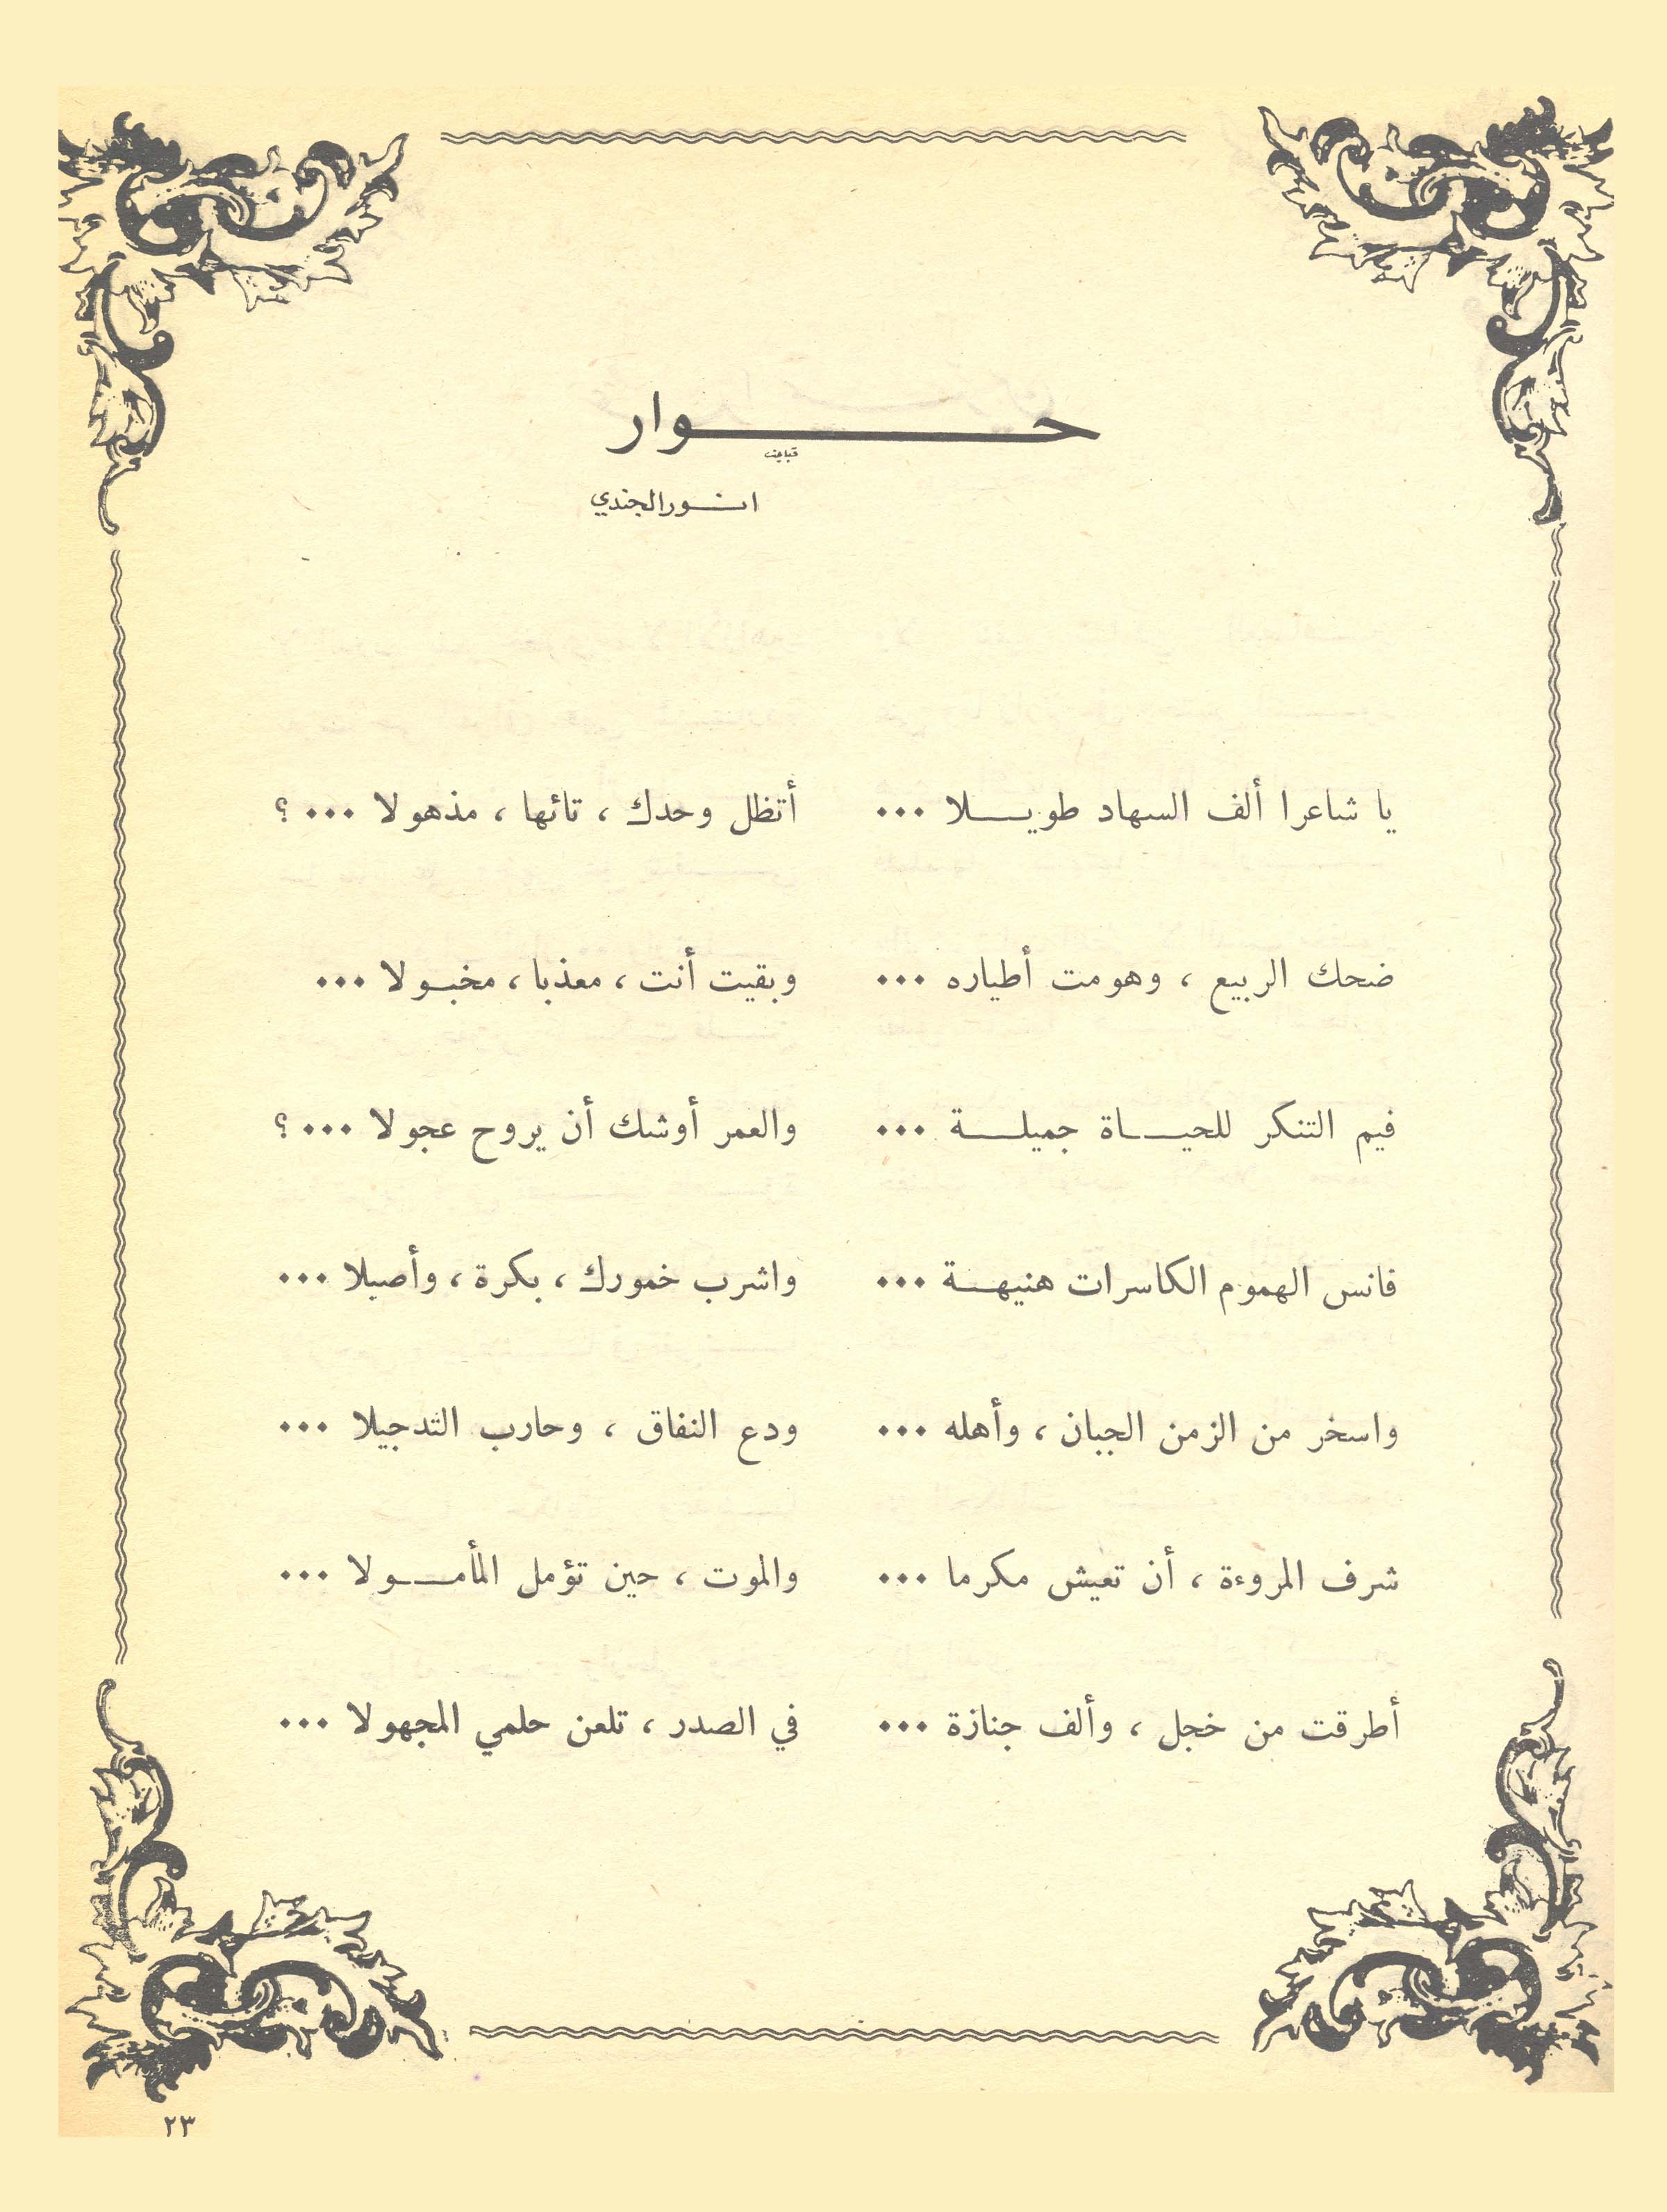 حـــوار
انــور الجندي
يا شاعرا ألف السهاد طويــلا ... أتظل وحدك ، تائها ، مذهولا ... ؟
ضحك الربيع ، وهومت أطياره ... وبقيت أنت ، معذبا ، مخبـولا ...
فيم التنكر للحيــاة جميلــة ... والعمر أوشك أن يروح عجولا ... ؟
فانس الهموم الكاسرات هنيهــة ... واشرب خمورك ، بكرة ، وأصيلا ...
واسخر من الزمن الجبان ، وأهله ... ودع النفاق ، وحارب التدجيلا ...
شرف المروءة ، أن تعيش مكرما ... والموت ، حين تؤمل المأمــولا ...
أطرقت من خجل ، وألف جنازة ... في الصدر ، تلعن حلمي المجهولا ...
٢٣